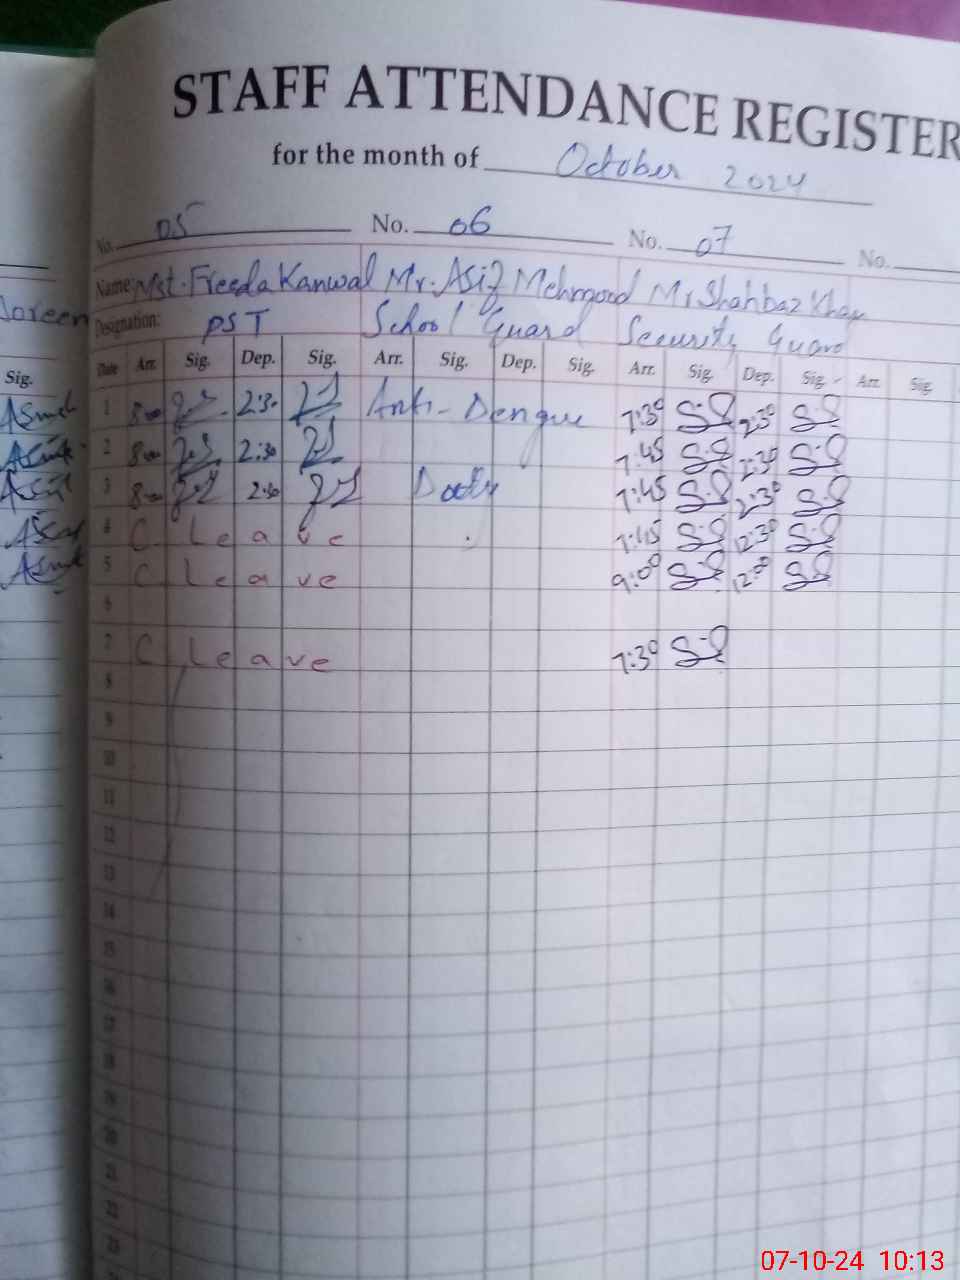 STAFF ATTENDANCE REGISTER
for the month of October 2024
No. 05 No. 06 No. 07 No.
Name: Mst. Freeda Kanwal Mr. Asif Mehmood Mr Shahbaz Khan
Designation: PST School Guard Security Guard
Date Arr. Sig. Dep. Sig. Arr. Sig. Dep. Sig. Arr. Sig. Dep. Sig. Arr. Sig.
Sig.
1 8:00 2:30 Anti-Dengue 7:30 2:30
2 8:00 2:30 7:45 2:30
3 8:00 2:30 Duty 7:45 2:30
4 C. Leave 7:45 12:30
5 C. Leave 9:00 12:00
6
7 C. Leave 7:30
8
9
10
11
12
13
14
15
16
17
18
19
20
21
22
23
07-10-24 10:13